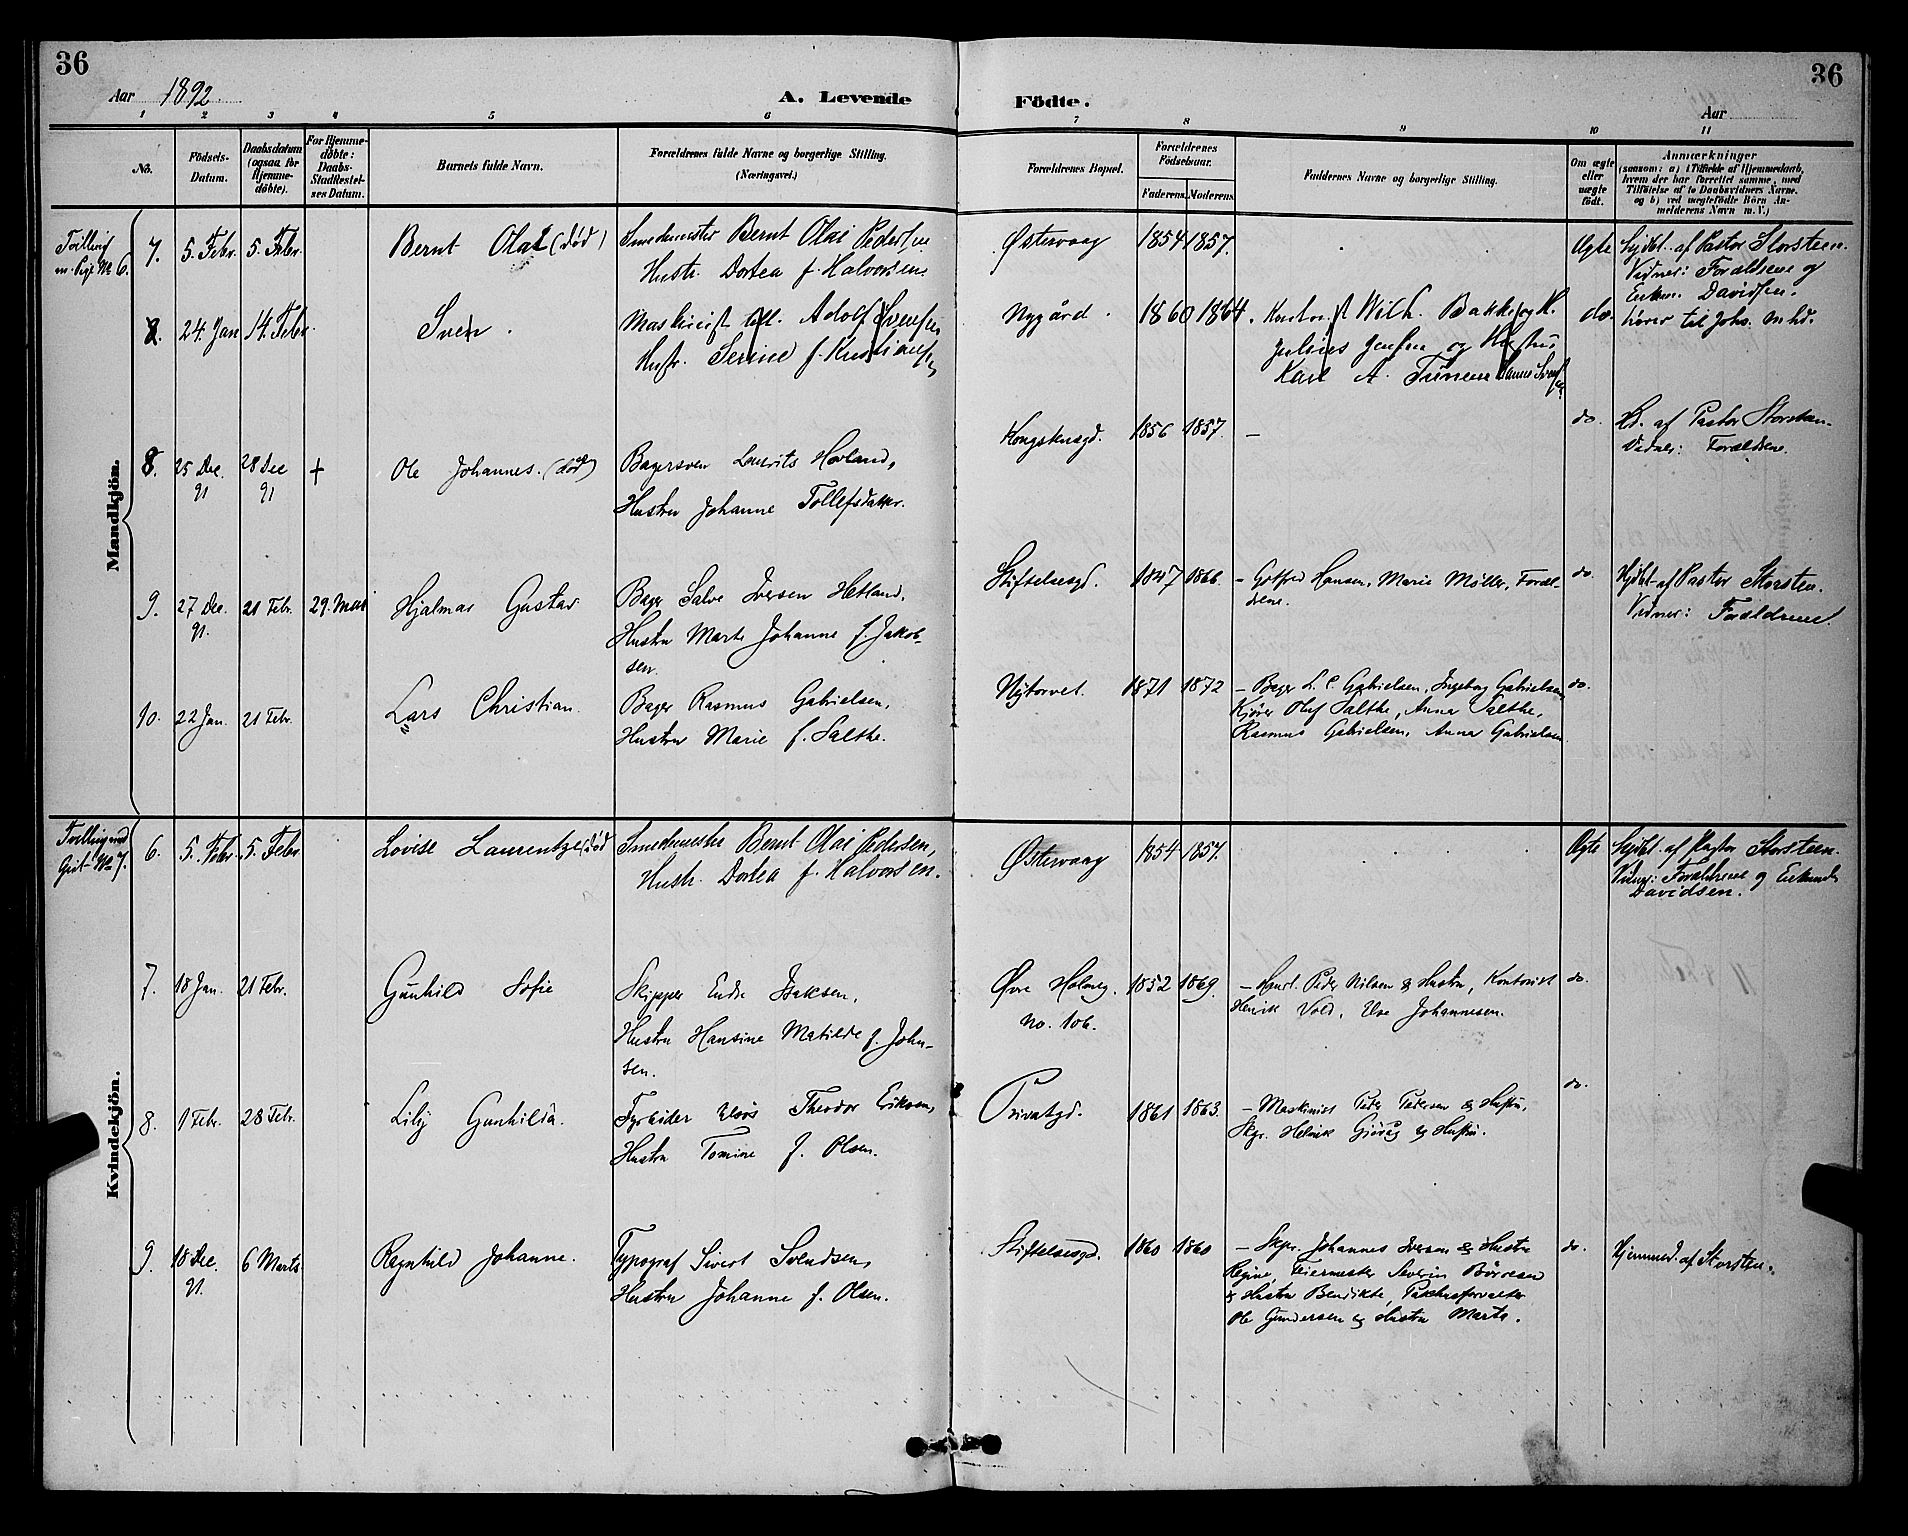 36
Aar 1892
A. Levende
Födte.
Aar
36
1 2 3 4 5 6 7 8 9 10 11
No.
Födsels-Datum.
Daabsdatum (ogsaa for Hjemmedöbte).
For Hjemmedöbte: Daabs-Stadfæstelses Datum.
Barnets fulde Navn.
Forældrenes fulde Navne og borgerlige Stilling. (Næringsvei.)
Forældrenes Bopæl.
Forældrenes Födselsaar.
Faderens. Moderens.
Faddernes Navne og borgerlige Stilling.
Om ægte eller uægte födt.
Anmærkninger (saasom: a) i Tilfælde af Hjemmedaab, hvem der har forrettet samme, med Tilföielse af to Daabsvidners Navne, og b) ved uægtefödte Börn Anmelderens Navn m. V.)
Mandkjön.
Tvilling m. Pige No 6.
7. 5. Febr. 5. Febr. Bernt Olai (død)
Smedmester Bernt Olai Pedersen
Hustr. Dortea f. Halvorsen
Østervaag 1854 1857. Ægte
Hjdbt. af Pastor Storsteen.
Vidner: Forældrene og
Enkem. Davidsen.
8. 24 Jan 14. Febr. Sven.
Maskinist Adolf Svensen
Hustr. Serine f. Kristiansen
Nygård. 1860 1864. Wilh. Bakke og H.
Julius Jensen og Hustru
Karl A. do.
hører til Joh. mhd.
8. 25 Dec. 91 28 Dec 91 + Ole Johannes. (død)
Bagersven Laurits Hovland,
Hustru Johanne Tollefsdatter.
Kongsteusgd. 1856 1857. — do.
Hd. af Pastor Storsteen.
Vidner: Forældrene.
9. 27 Dec. 91. 21 Febr. 29. Mai Hjalmar Gustav
Bager Salve Iversen Hetland,
Hustru Marte Johanne f. Jakobsen
Stiftelsesgd. 1847 1866. – Gotfred Hansen, Marie Møller, Forældrene. do.
Hjdbt. af Pastor Storsten.
Vidner: Forældrene.
10. 22 Jan. 21 Febr. Lars Christian.
Bager Rasmus Gabrielsen,
Hustru Marie f. Salthe.
Nytorvet. 1871 1872 – Bager L. C. Gabrielsen, Ingeborg Gabrielsen,
Kjører Oluf Salthe, Anna Salthe,
Rasmus Gabrielsen, Anna Gabrielsen. do.
Kvindekjön.
Tvilling med Gut No 7.
6. 5. Febr. 5. Febr Lovise Laurentze. død
Smedmester Bernt Olai Pedersen,
Hustr. Dortea f. Halvorsen.
Østervaag 1854 1857. Ægte
Hjdbt. af Pastor Storsteen.
Vidner: Forældrene og Enkemd.
Davidsen.
7. 18 Jan. 21 Febr. Gunhild Sofie
Skipper Endre Isaksen,
Hustru Hansine Matilde f. Johnsen.
Øvre Holmeg. No. 106. 1852 1869. – Peder Nilsen & Hustru, Kontorist
Henrik Vold, Johannesen. do.
8. 1 Febr. 28 Febr. Lilly Gunhilda.
Fyrbøder Theodor Eriksen,
Hustru Tomine f. Olsen.
Privatgd. 1861 1863. – Maskinist Peder Pedersen & Hustru,
Skpr. Henrik & Hustru. do.
9. 18 Dec. 91. 6 Marts Ragnhild Johanne.
Typograf Sivert Svendsen,
Hustru Johanne f. Olsen.
Stiftelsesgd. 1860 1860 – Skpr. Johannes Iversen & Hustru
Regine, Feiermester Severin Børresen
& Hustru Bendikte, Pakhusforvalter
Ole Gundersen & Hustru Marta. do.
Hjemmed. af Storsten.